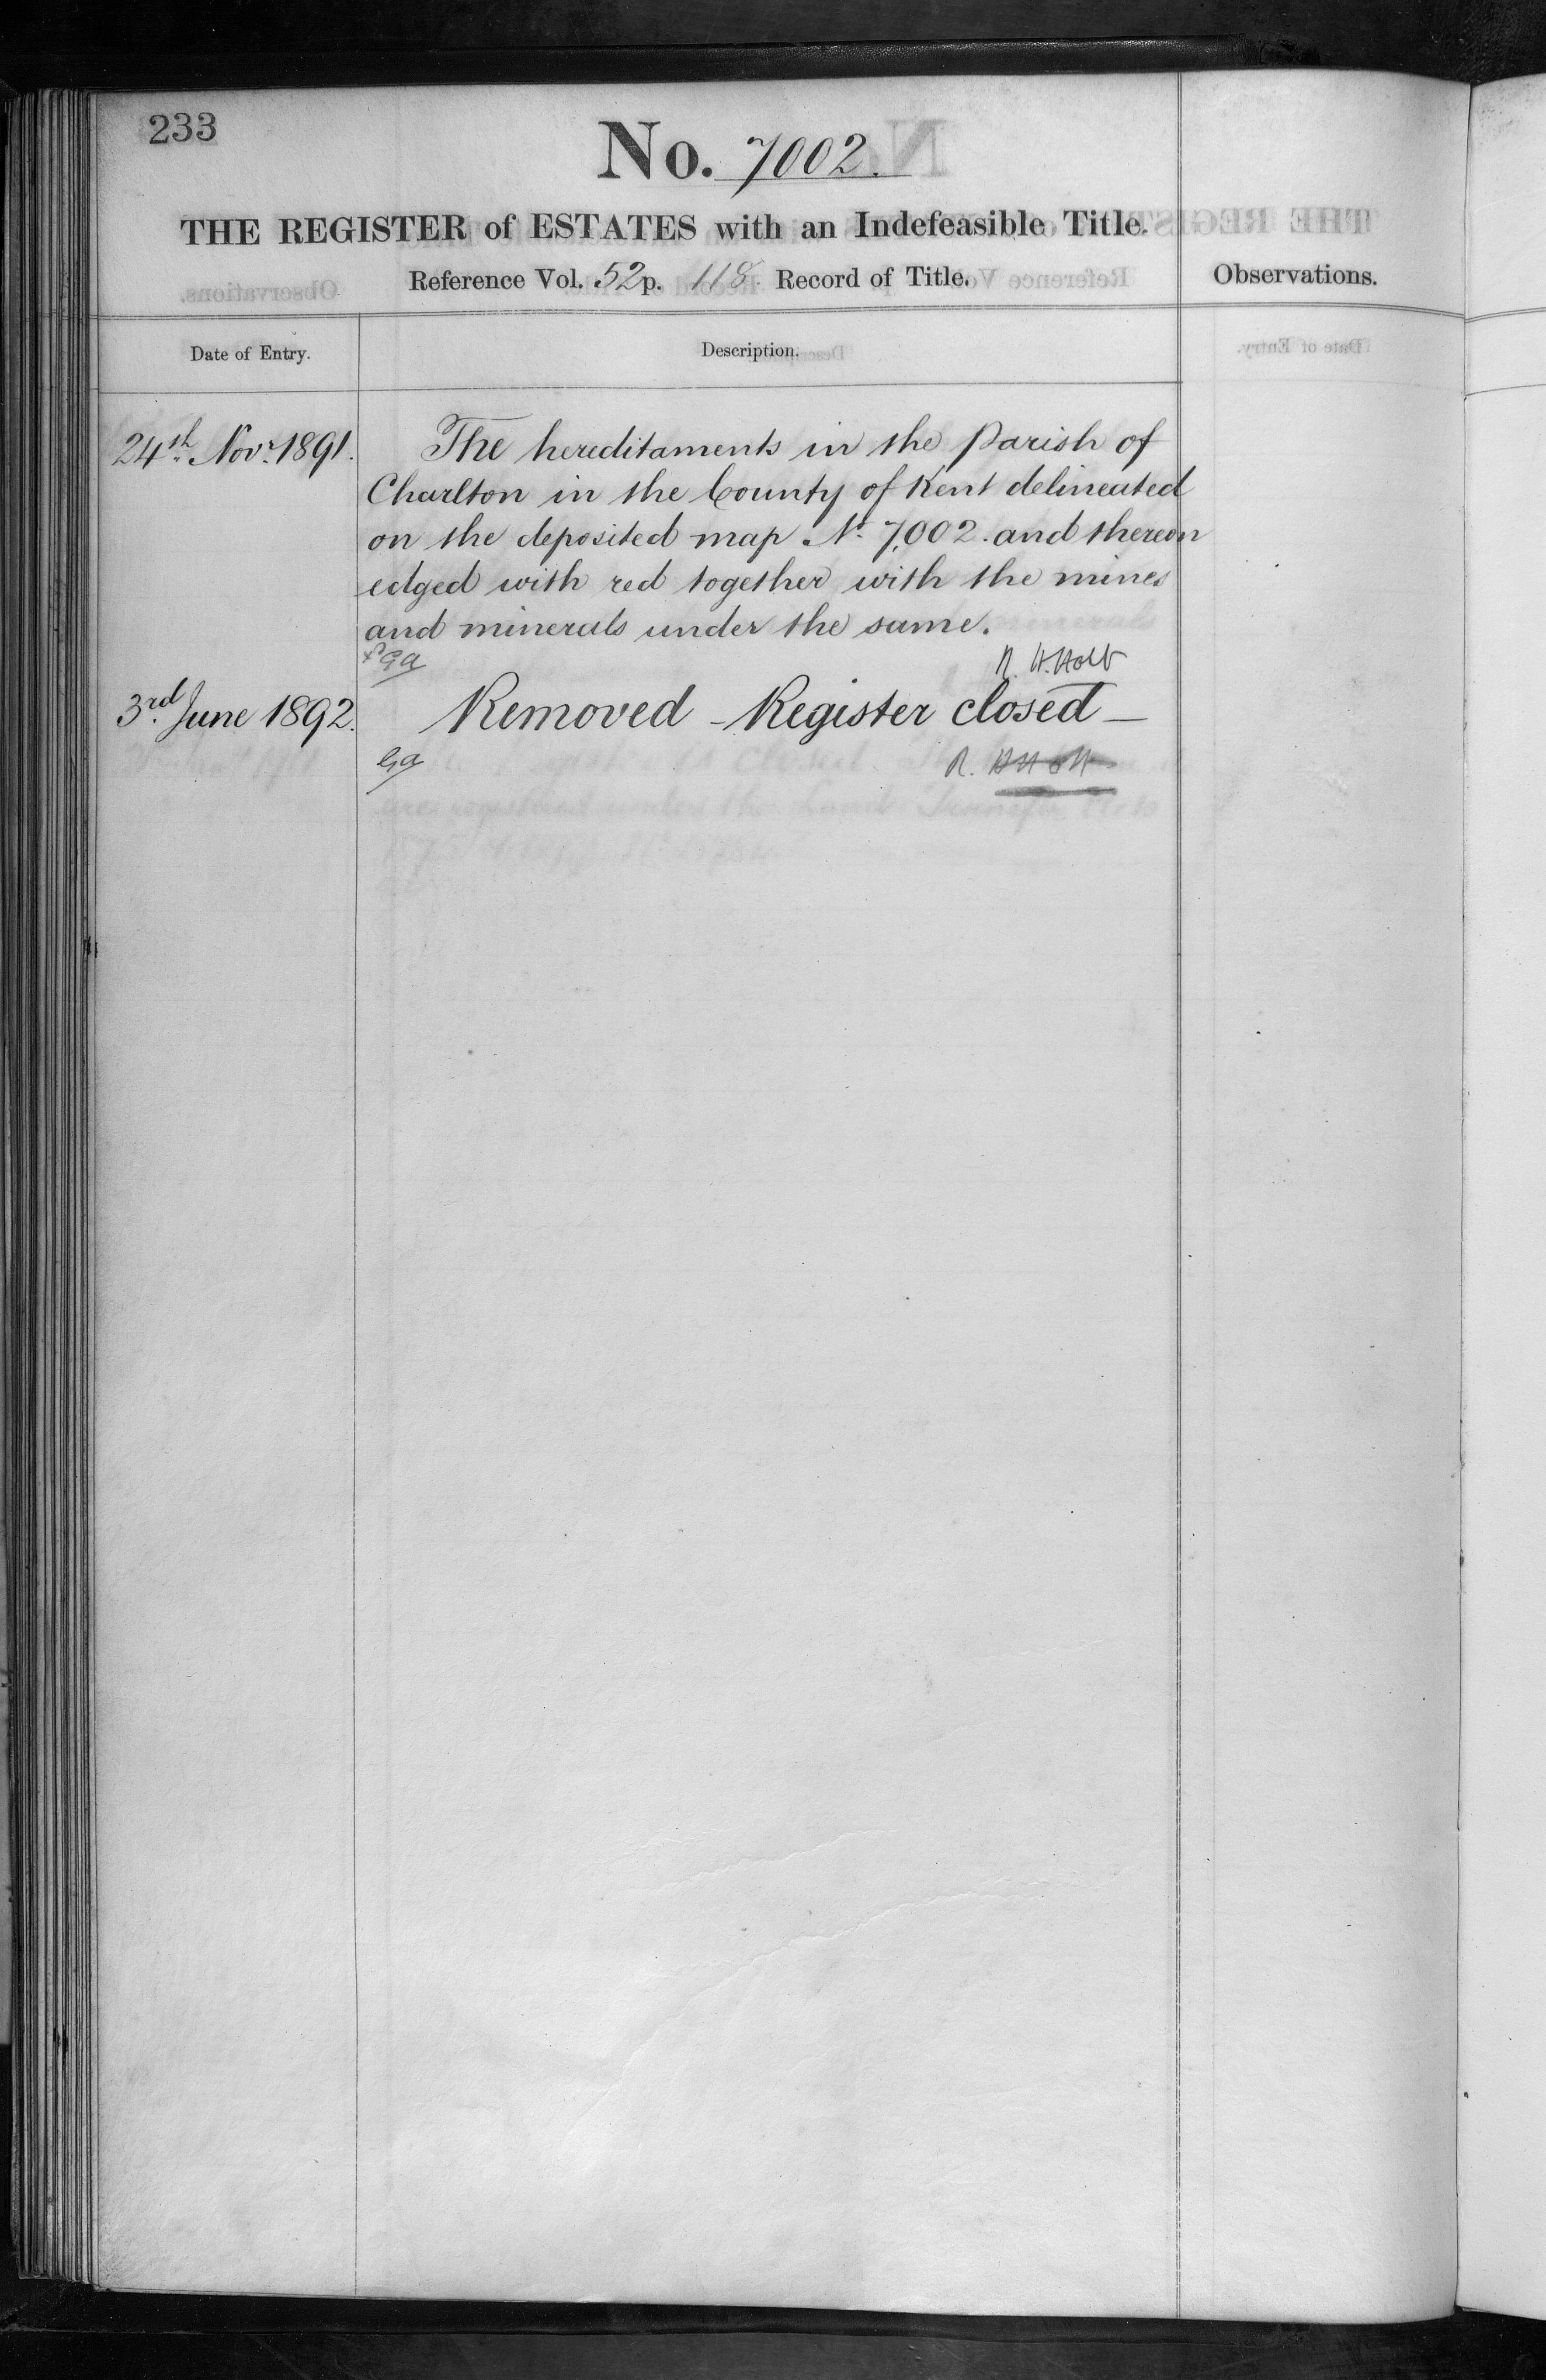 233
No. 7002.
THE REGISTER of ESTATES with an Indefeasible Title.
Reference Vol. 52 p. 118. Record of Title.
Observations.
Date of Entry.
Description.
24th Novr. 1891.
The hereditaments in the Parish of
Charlton in the County of Kent delineated
on the deposited map No. 7,002. and thereon
edged with red together with the mines
and minerals under the same.
R. H. Holt
3rd June 1892.
Removed - Register closed -
R. H Holt